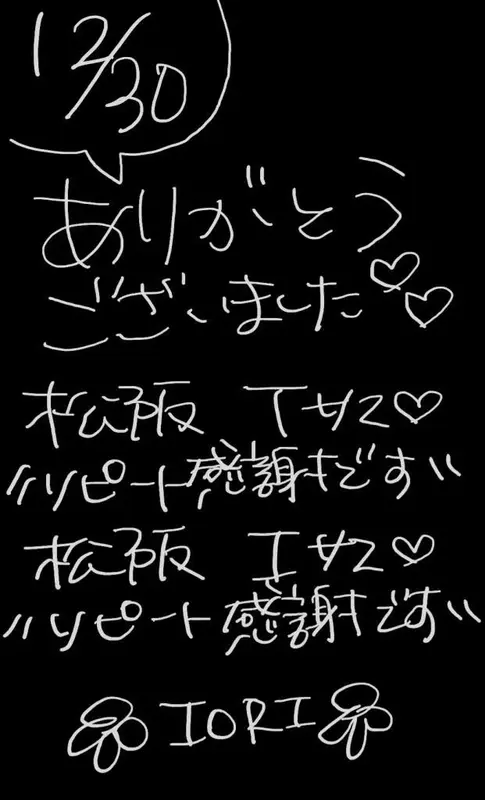 12/30
ありがとう
ございました♡♡
松阪 Tサマ♡
〃リピート感謝です〃
松阪 Iサマ♡
〃リピート感謝です〃
IORI